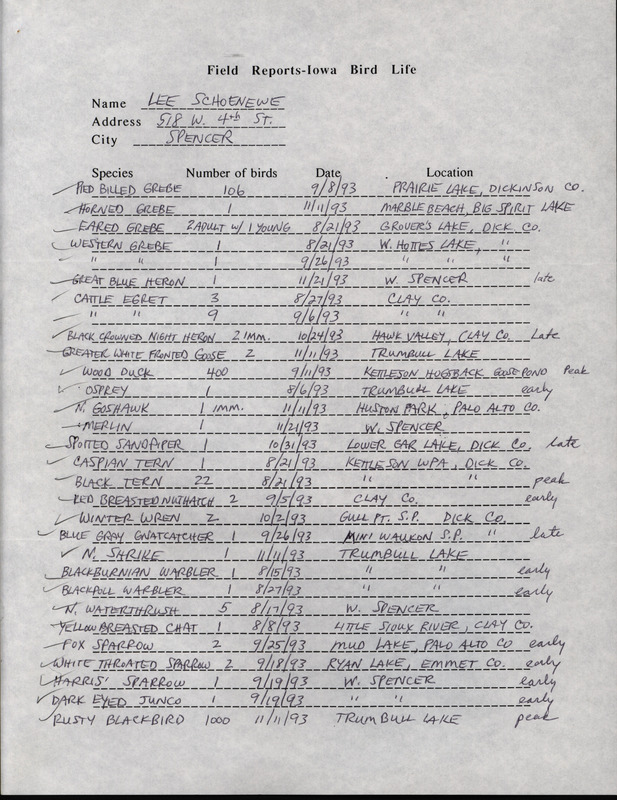 Field Reports-Iowa Bird Life
Name LEE SCHOENEWE
Address 518 W. 4th ST.
City SPENCER
Species Number of birds Date Location
PIED BILLED GREBE 106 9/8/93 PRAIRIE LAKE, DICKINSON CO.
HORNED GREBE 1 11/11/93 MARBLE BEACH, BIG SPIRIT LAKE
EARED GREBE 2 ADULT W/ 1 YOUNG 8/21/93 GROVER'S LAKE, DICK CO.
WESTERN GREBE 1 8/21/93 W. HOTTES LAKE, "
" " 1 9/26/93 " " "
GREAT BLUE HERON 1 11/21/93 W. SPENCER late
CATTLE EGRET 3 8/27/93 CLAY CO.
" " 9 9/6/93 " "
BLACK CROWNED NIGHT HERON 2 IMM. 10/24/93 HAWK VALLEY, CLAY CO. Late
GREATER WHITE FRONTED GOOSE 2 11/11/93 TRUMBULL LAKE
WOOD DUCK 400 9/11/93 KETTLESON HOGSBACK GOOSE POND Peak
OSPREY 1 8/6/93 TRUMBULL LAKE early
N. GOSHAWK 1 IMM. 11/11/93 HUSTON PARK, PALO ALTO CO.
MERLIN 1 11/21/93 W. SPENCER
SPOTTED SANDPIPER 1 10/31/93 LOWER GAR LAKE, DICK CO. late
CASPIAN TERN 1 8/21/93 KETTLESON WPA, DICK CO.
BLACK TERN 22 8/21/93 " " peak
RED BREASTED NUTHATCH 2 9/5/93 CLAY CO. early
WINTER WREN 2 10/2/93 GULL PT. S.P. DICK CO.
BLUE GRAY GNATCATCHER 1 9/26/93 MINI WAUKON S.P. " late
N. SHRIKE 1 11/11/93 TRUMBULL LAKE
BLACKBURNIAN WARBLER 1 8/15/93 " " early
BLACKPOLL WARBLER 1 8/27/93 " " early
N. WATERTHRUSH 5 8/17/93 W. SPENCER
YELLOW BREASTED CHAT 1 8/8/93 LITTLE SIOUX RIVER, CLAY CO.
FOX SPARROW 2 9/25/93 MUD LAKE, PALO ALTO CO early
WHITE THROATED SPARROW 2 9/18/93 RYAN LAKE, EMMET CO. early
HARRIS' SPARROW 1 9/19/93 W. SPENCER early
DARK EYED JUNCO 1 9/19/93 " " early
RUSTY BLACKBIRD 1000 11/11/93 TRUMBULL LAKE peak